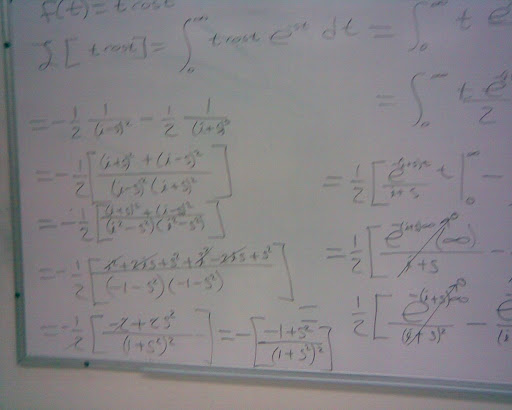 f(t) = t cost
L[t cost] = ∫₀^∞ t cost e^st dt = ∫₀^∞ t e
= ∫₀^∞ t e / 2
= -1/2 1/(i-s)² - 1/2 1/(i+s)²
= -1/2 [ (i+s)² + (i-s)² / (i-s)² (i+s)² ]
= -1/2 [ (i+s)² + (i-s)² / (i² - s²)(i² - s²) ]
= -1/2 [ i² + 2is + s² + i² - 2is + s² / (-1-s²)(-1-s²) ]
= -1/2 [ -2 + 2s² / (1+s²)² ] = -[ -1+s² / (1+s²)² ]
= 1/2 [ e^-(i+s)t / i+s t |₀^∞ -
= 1/2 [ e^-(i+s)∞ (∞) / i+s 0 -
1/2 [ e^-(i+s)∞ / (i+s)² 0 - e / (i